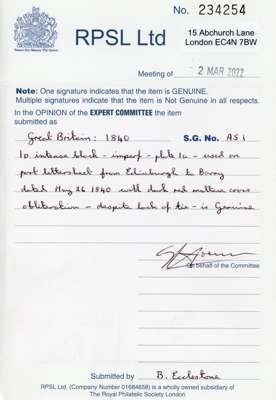 No. 234254
RPSL Ltd
15 Abchurch Lane
London EC4N 7BW
Meeting of 2 MAR 2022
Note: One signature indicates that the item is GENUINE.
Multiple signatures indicate that the item is Not Genuine in all respects.
In the OPINION of the EXPERT COMMITTEE the item
submitted as
Great Britain: 1840 S.G. No. AS1
1d intense black - imperf - plate 1a - used on
part lettersheet from Edinburgh to
dated May 26 1840 with dark red maltese cross
obliteration - despite lack of tie - is Genuine
On behalf of the Committee
Submitted by B. Ecclestone
RPSL Ltd. (Company Number 01684658) is a wholly owned subsidiary of
The Royal Philatelic Society London